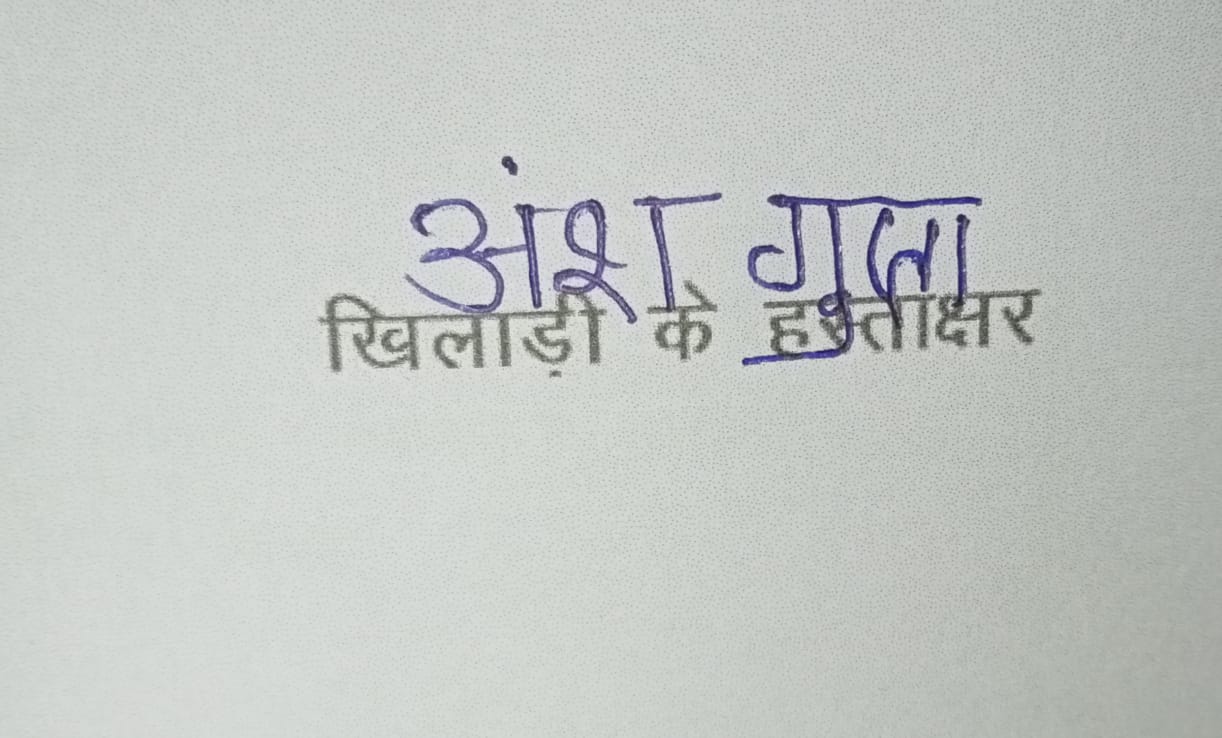 अंश गुप्ता
खिलाड़ी के हस्ताक्षर